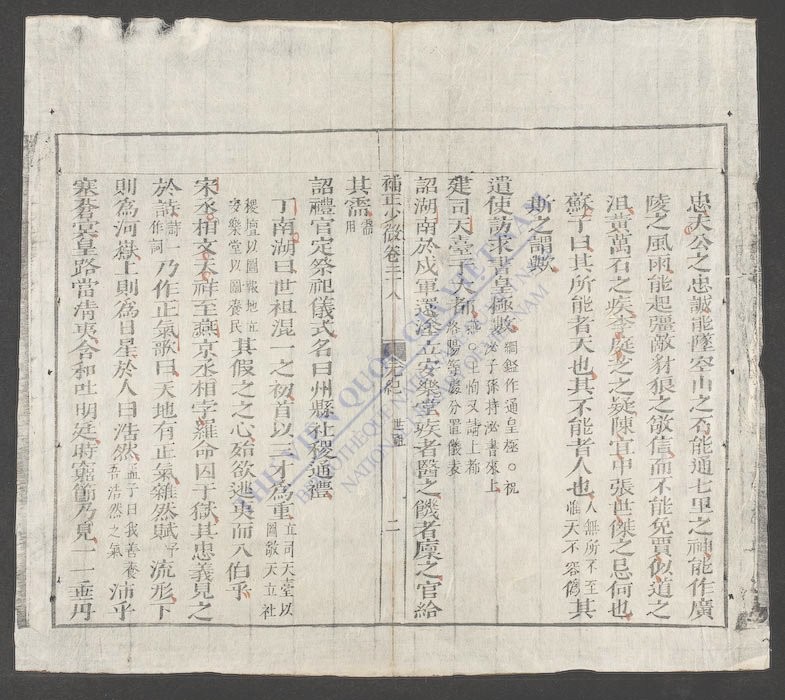 忠夫公之忠誠能墜空山之石能通七里之神能作廣
陵之風雨能起彊敵豺狼之敬信而不能免賈似道之
沮黃萬石之疾李庭芝之疑陳宜中張世傑之忌何也
蘇子曰其所能者天也其不能者人也人無所不至惟天不容偽其
斯之謂歟
遣使訪求皇極數祝泌子孫持泌書來上
建司天臺于大都洛陽等處分置儀表
詔湖南於戍軍還途立安樂堂疾者醫之饑者廩之官給
其需
補正少微卷三十八 元紀 世祖 二
詔禮官定祭祀儀式名曰州縣社稷通禮
丁南湖曰世祖混一之初首以三才為重立司天臺以圖敬天立社
稷壇以圖報地立安樂堂以圖養民其假之之心殆欲逃夷而入伯乎
宋丞相文天祥至燕京丞相孛羅命囚于獄其忠義見之
於詩一作詞乃作正氣歌曰天地有正氣雜然賦予流形下
則為河嶽上則為日星於人曰浩然孟子曰我善養吾浩然之氣沛乎
塞蒼冥皇路當清夷含和吐明庭時窮節乃見一一垂丹
THƯ VIỆN QUỐC GIA VIỆT NAM
BIBLIOTHÈQUE NATIONALE DU VIETNAM
NATIONAL LIBRARY OF VIETNAM